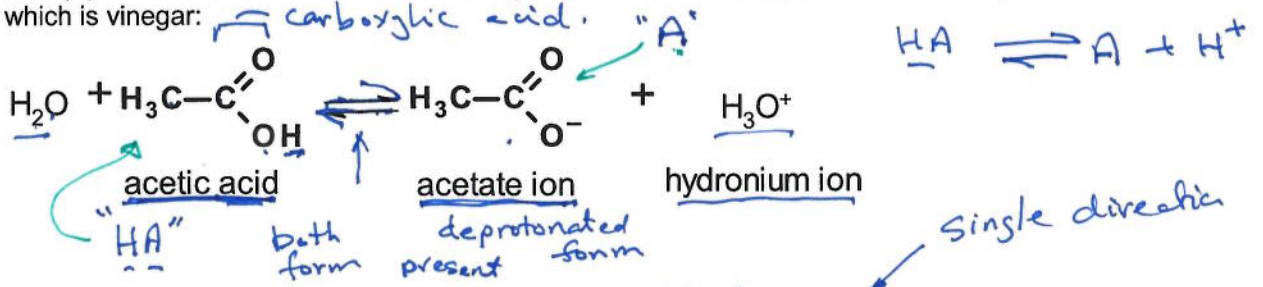 which is vinegar: carboxylic acid. "A"
HA ⇌ A + H⁺
H₂O + H₃C–C O OH ⇌ H₃C–C O O⁻ + H₃O⁺
acetic acid acetate ion hydronium ion
"HA" both form present deprotonated form
single direction